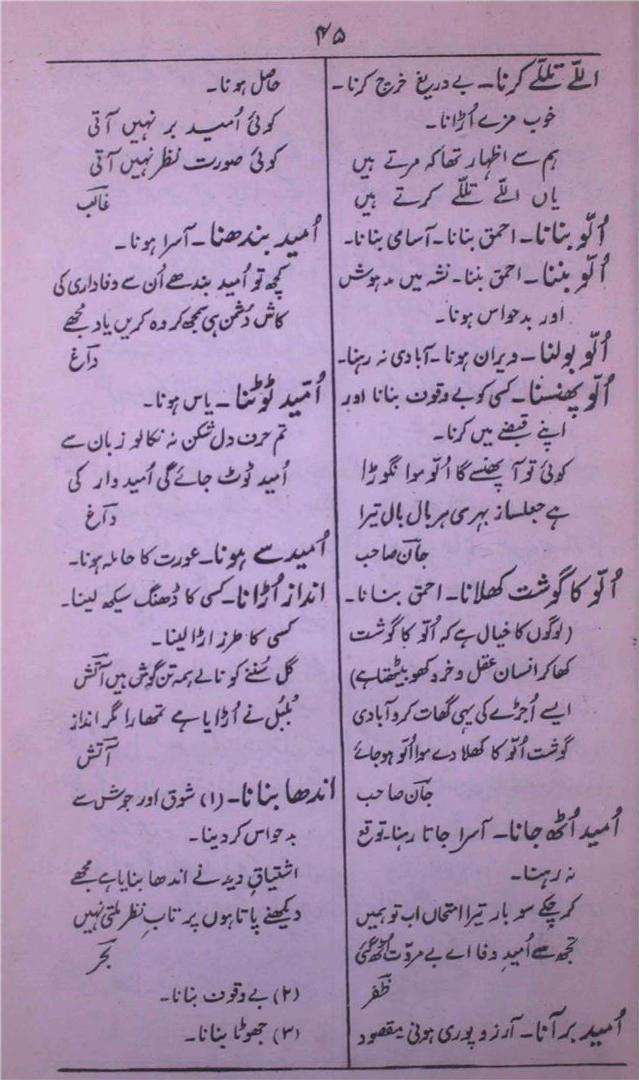 ۴۵
اللّے تللّے کرنا۔ بے دریغ خرچ کرنا۔
خوب مزے اُڑانا۔
ہم سے اظہار تھا کہ مرتے ہیں
یاں اللّے تللّے کرتے ہیں
اُلّو بنانا۔ احمق بنانا۔ آسامی بنانا۔
اُلّو بننا۔ احمق بننا۔ نشہ میں مدہوش
اور بدحواس ہونا۔
اُلّو بولنا۔ ویران ہونا۔ آبادی نہ رہنا۔
اُلّو پھنسنا۔ کسی کو بے وقوف بنانا اور
اپنے قبضے میں کرنا۔
کوئی تو آ پھنسے گا اُلّو موا نگوڑا
ہے جعلساز بہری ہر بال بال تیرا
جان صاحب
اُلّو کا گوشت کھلانا۔ احمق بنانا۔
(لوگوں کا خیال ہے کہ اُلّو کا گوشت
کھا کر انسان عقل و خرد کھو بیٹھتا ہے)
ایسے اُجڑے کی یہی گھات کرو آبادی
گوشت اُلّو کا کھلا دے موا اُلّو ہو جائے
جان صاحب
اُمید اُٹھ جانا۔ آسرا جاتا رہنا۔ توقع
نہ رہنا۔
کر چکے سو بار تیرا امتحاں اب تو ہمیں
تجھ سے اُمیدِ وفا اے بے مروّت اُٹھ گئی
ظفر
اُمید بر آنا۔ آرزو پوری ہونی۔ مقصود
حاصل ہونا۔
کوئی اُمید بر نہیں آتی
کوئی صورت نظر نہیں آتی
غالب
اُمید بندھنا۔ آسرا ہونا۔
کچھ تو اُمید بندھے اُن سے وفاداری کی
کاش دُشمن ہی سمجھ کر وہ کریں یاد مجھے
داغ
اُمّید ٹوٹنا۔ یاس ہونا۔
تم حرف دل شکن نہ نکالو زبان سے
اُمید ٹوٹ جائے گی اُمیدوار کی
داغ
اُمید سے ہونا۔ عورت کا حاملہ ہونا۔
انداز اُڑانا۔ کسی کا ڈھنگ سیکھ لینا۔
کسی کا طرز اڑا لینا۔
گل سُننے کو نالے ہمہ تن گوش ہیں آتش
بُلبُل نے اُڑایا ہے تمھارا مگر انداز
آتش
اندھا بنانا۔ (۱) شوق اور جوش سے
بدحواس کر دینا۔
اشتیاقِ دید نے اندھا بنایا ہے مجھے
دیکھنے پاتا ہوں پر تابِ نظر ملتی نہیں
بحر
(۲) بے وقوف بنانا۔
(۳) جھوٹا بنانا۔